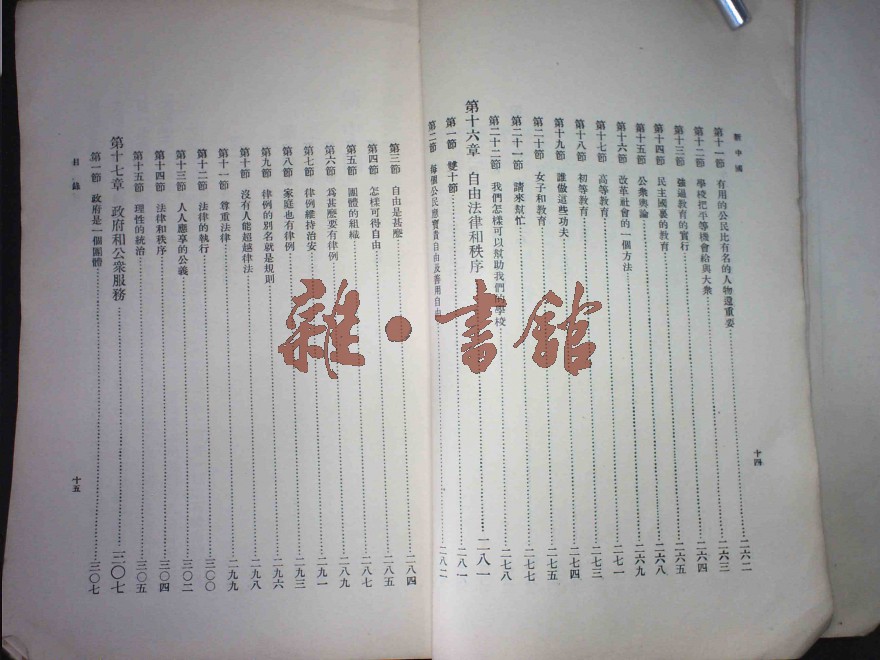 新中國
第十一節 有用的公民比有名的人物還重要……二六二
第十二節 學校把平等機會給與大衆……二六三
第十三節 強迫教育的實行……二六四
第十四節 民主國裏的教育……二六五
第十五節 公衆輿論……二六八
第十六節 改革社會的一個方法……二六九
第十七節 高等教育……二七一
第十八節 初等教育……二七三
第十九節 誰做這些功夫……二七四
第二十節 女子和教育……二七五
第二十一節 請來幫忙……二七七
第二十二節 我們怎樣可以幫助我們的學校……二七八
第十六章 自由法律和秩序……二八一
第一節 雙十節……二八一
第二節 每個公民應寶貴自由及善用自由……二八二
十四
第三節 自由是甚麼……二八四
第四節 怎樣可得自由……二八五
第五節 團體的組織……二八七
第六節 爲甚麼要有律例……二八九
第七節 律例維持治安……二九一
第八節 家庭也有律例……二九三
第九節 律例的別名就是規則……二九六
第十節 沒有人能超越律法……二九八
第十一節 尊重法律……二九九
第十二節 法律的執行……三〇〇
第十三節 人人應享的公義……三〇二
第十四節 法律和秩序……三〇四
第十五節 理性的統治……三〇五
第十七章 政府和公衆服務……三〇七
第一節 政府是一個團體……三〇七
目錄
十五
雜·書館